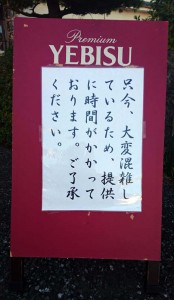 Premium
YEBISU
只今、大変混雑し
ているため、提供
に時間がかかって
おります。ご了承
ください。